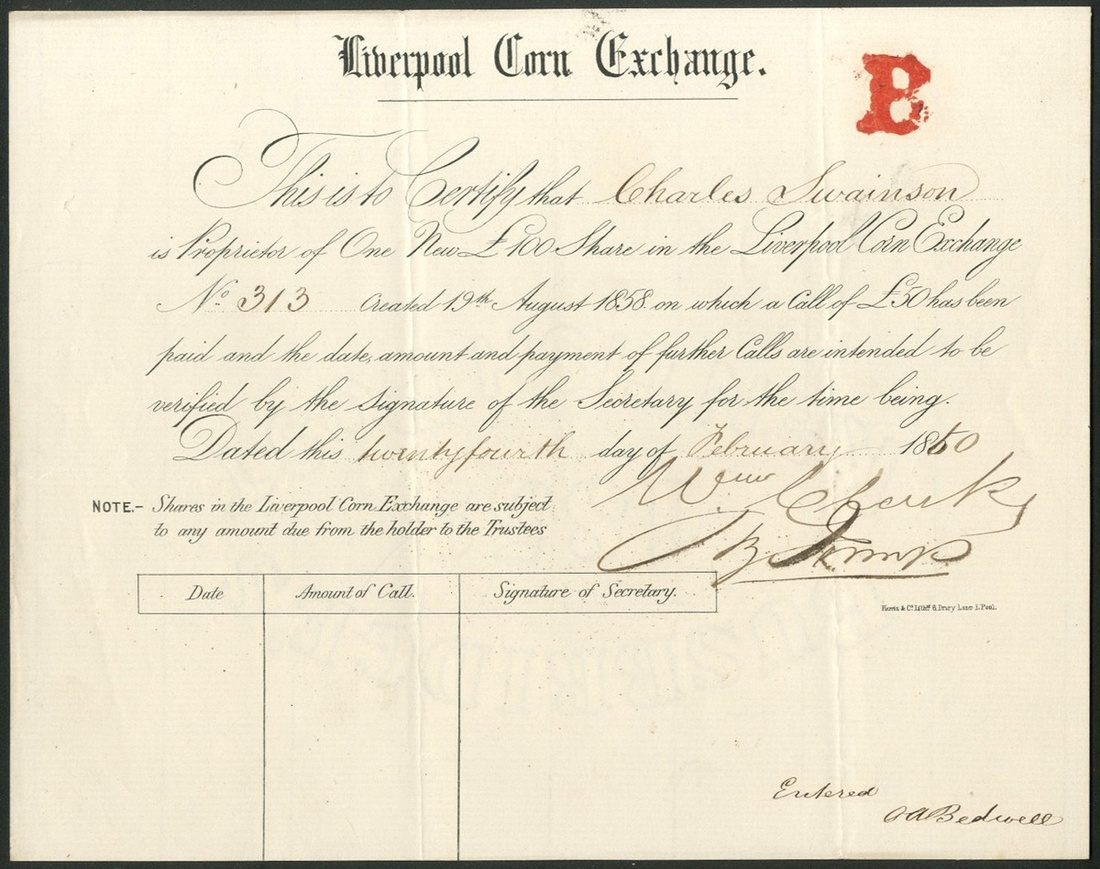 Liverpool Corn Exchange.
B
This is to Certify that Charles Swainson
is Proprietor of One New £100 Share in the Liverpool Corn Exchange
No. 313 Created 19th August 1858 on which a Call of £50 has been
paid and the date, amount and payment of further Calls are intended to be
verified by the Signature of the Secretary for the time being.
Dated this twentyfourth day of February 1860
Wm
NOTE.- Shares in the Liverpool Corn Exchange are subject
to any amount due from the holder to the Trustees
Date Amount of Call. Signature of Secretary.
Drury Lane L'Pool.
Entered
Bedwell